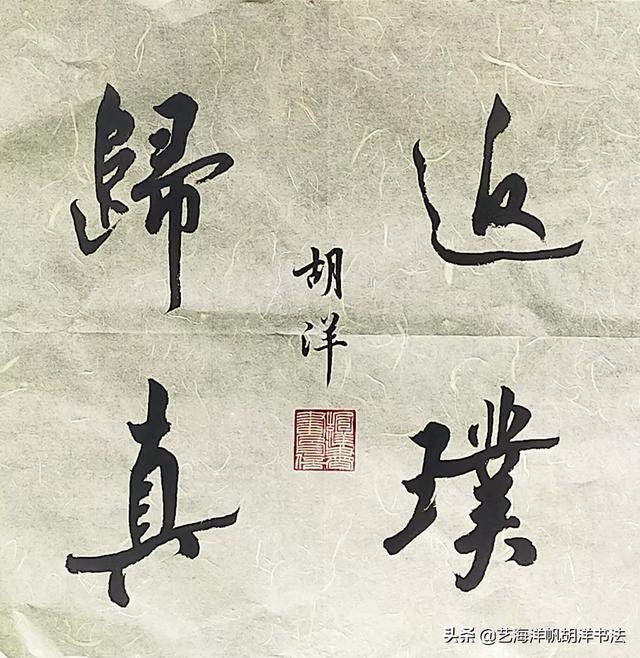 返璞
歸真
胡洋
头条 @艺海洋帆胡洋书法